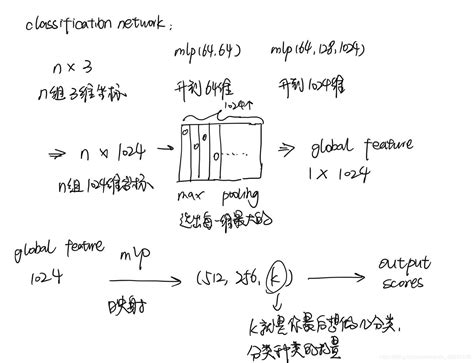 classification network:
n × 3 mlp(64,64) mlp(64,128,1024)
n组3维坐标 升到64维 升到1024维
1024个
⇒ n × 1024 → ⇒ global feature
n组1024维坐标 1 × 1024
max pooling
选出每一维最大的
global feature mlp
1024 → (512, 256, k) → output scores
映射
k就是你最后想做几分类,
分类种类的数量